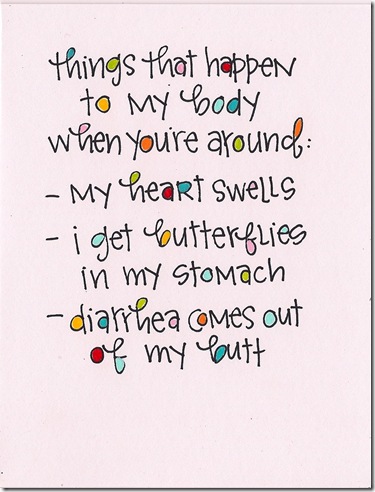 things that happen
to my body
when you're around:
- my heart swells
- i get butterflies
in my stomach
- diarrhea comes out
of my butt